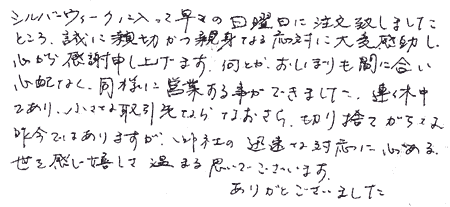 シルバーウィークに入って早々の日曜日に注文致しました
ところ、誠に親切かつ親身なる応対に大変感動し、
心から感謝申し上げます。何とか、おしぼりも間に合い
心配なく、同様に営業する事ができました。連休中
であり、小さな取引先ならなおさら、切り捨てがちな
昨今ではありますが、御社の迅速な対応に心ある
世を感じ嬉しく温まる思いでございます。
ありがとうございました